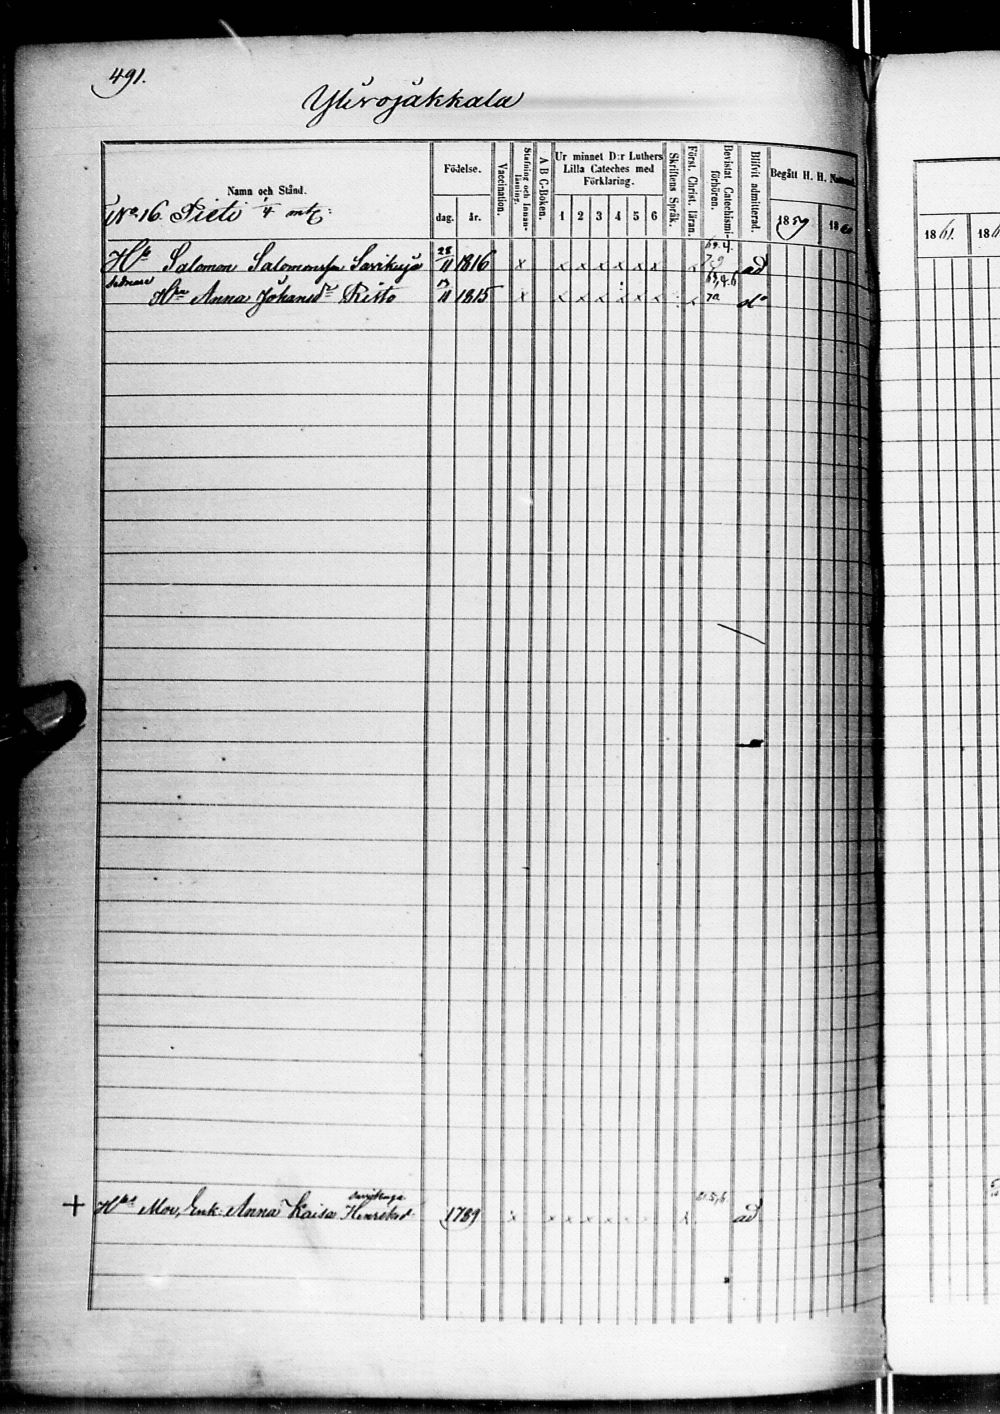 491.
Ylivojakkala
Namn och Stånd.
Födelse.
dag.
år.
Vaccination.
Stafning och Innanläsning.
A B C-Boken.
Ur minnet D:r Luthers Lilla Cateches med Förklaring.
1 2 3 4 5 6
Skriftens Språk.
Först. Christ. läran.
Bevistat Catechismiförhören.
Blifvit admitterad.
Begått H. H.
1859
1860
1861.
No 16. Pieti 1/4 mtl:
Hb Salomon Salomonsson Savikuja 28/11 1816 x x x x x x x x ad
Hns Anna Johansdr Risto /11 1815 x x x x x x x x do
+ Hbs Mor, Enk. Anna Kaisa Henriksdr 1789 x x x x x x x x ad